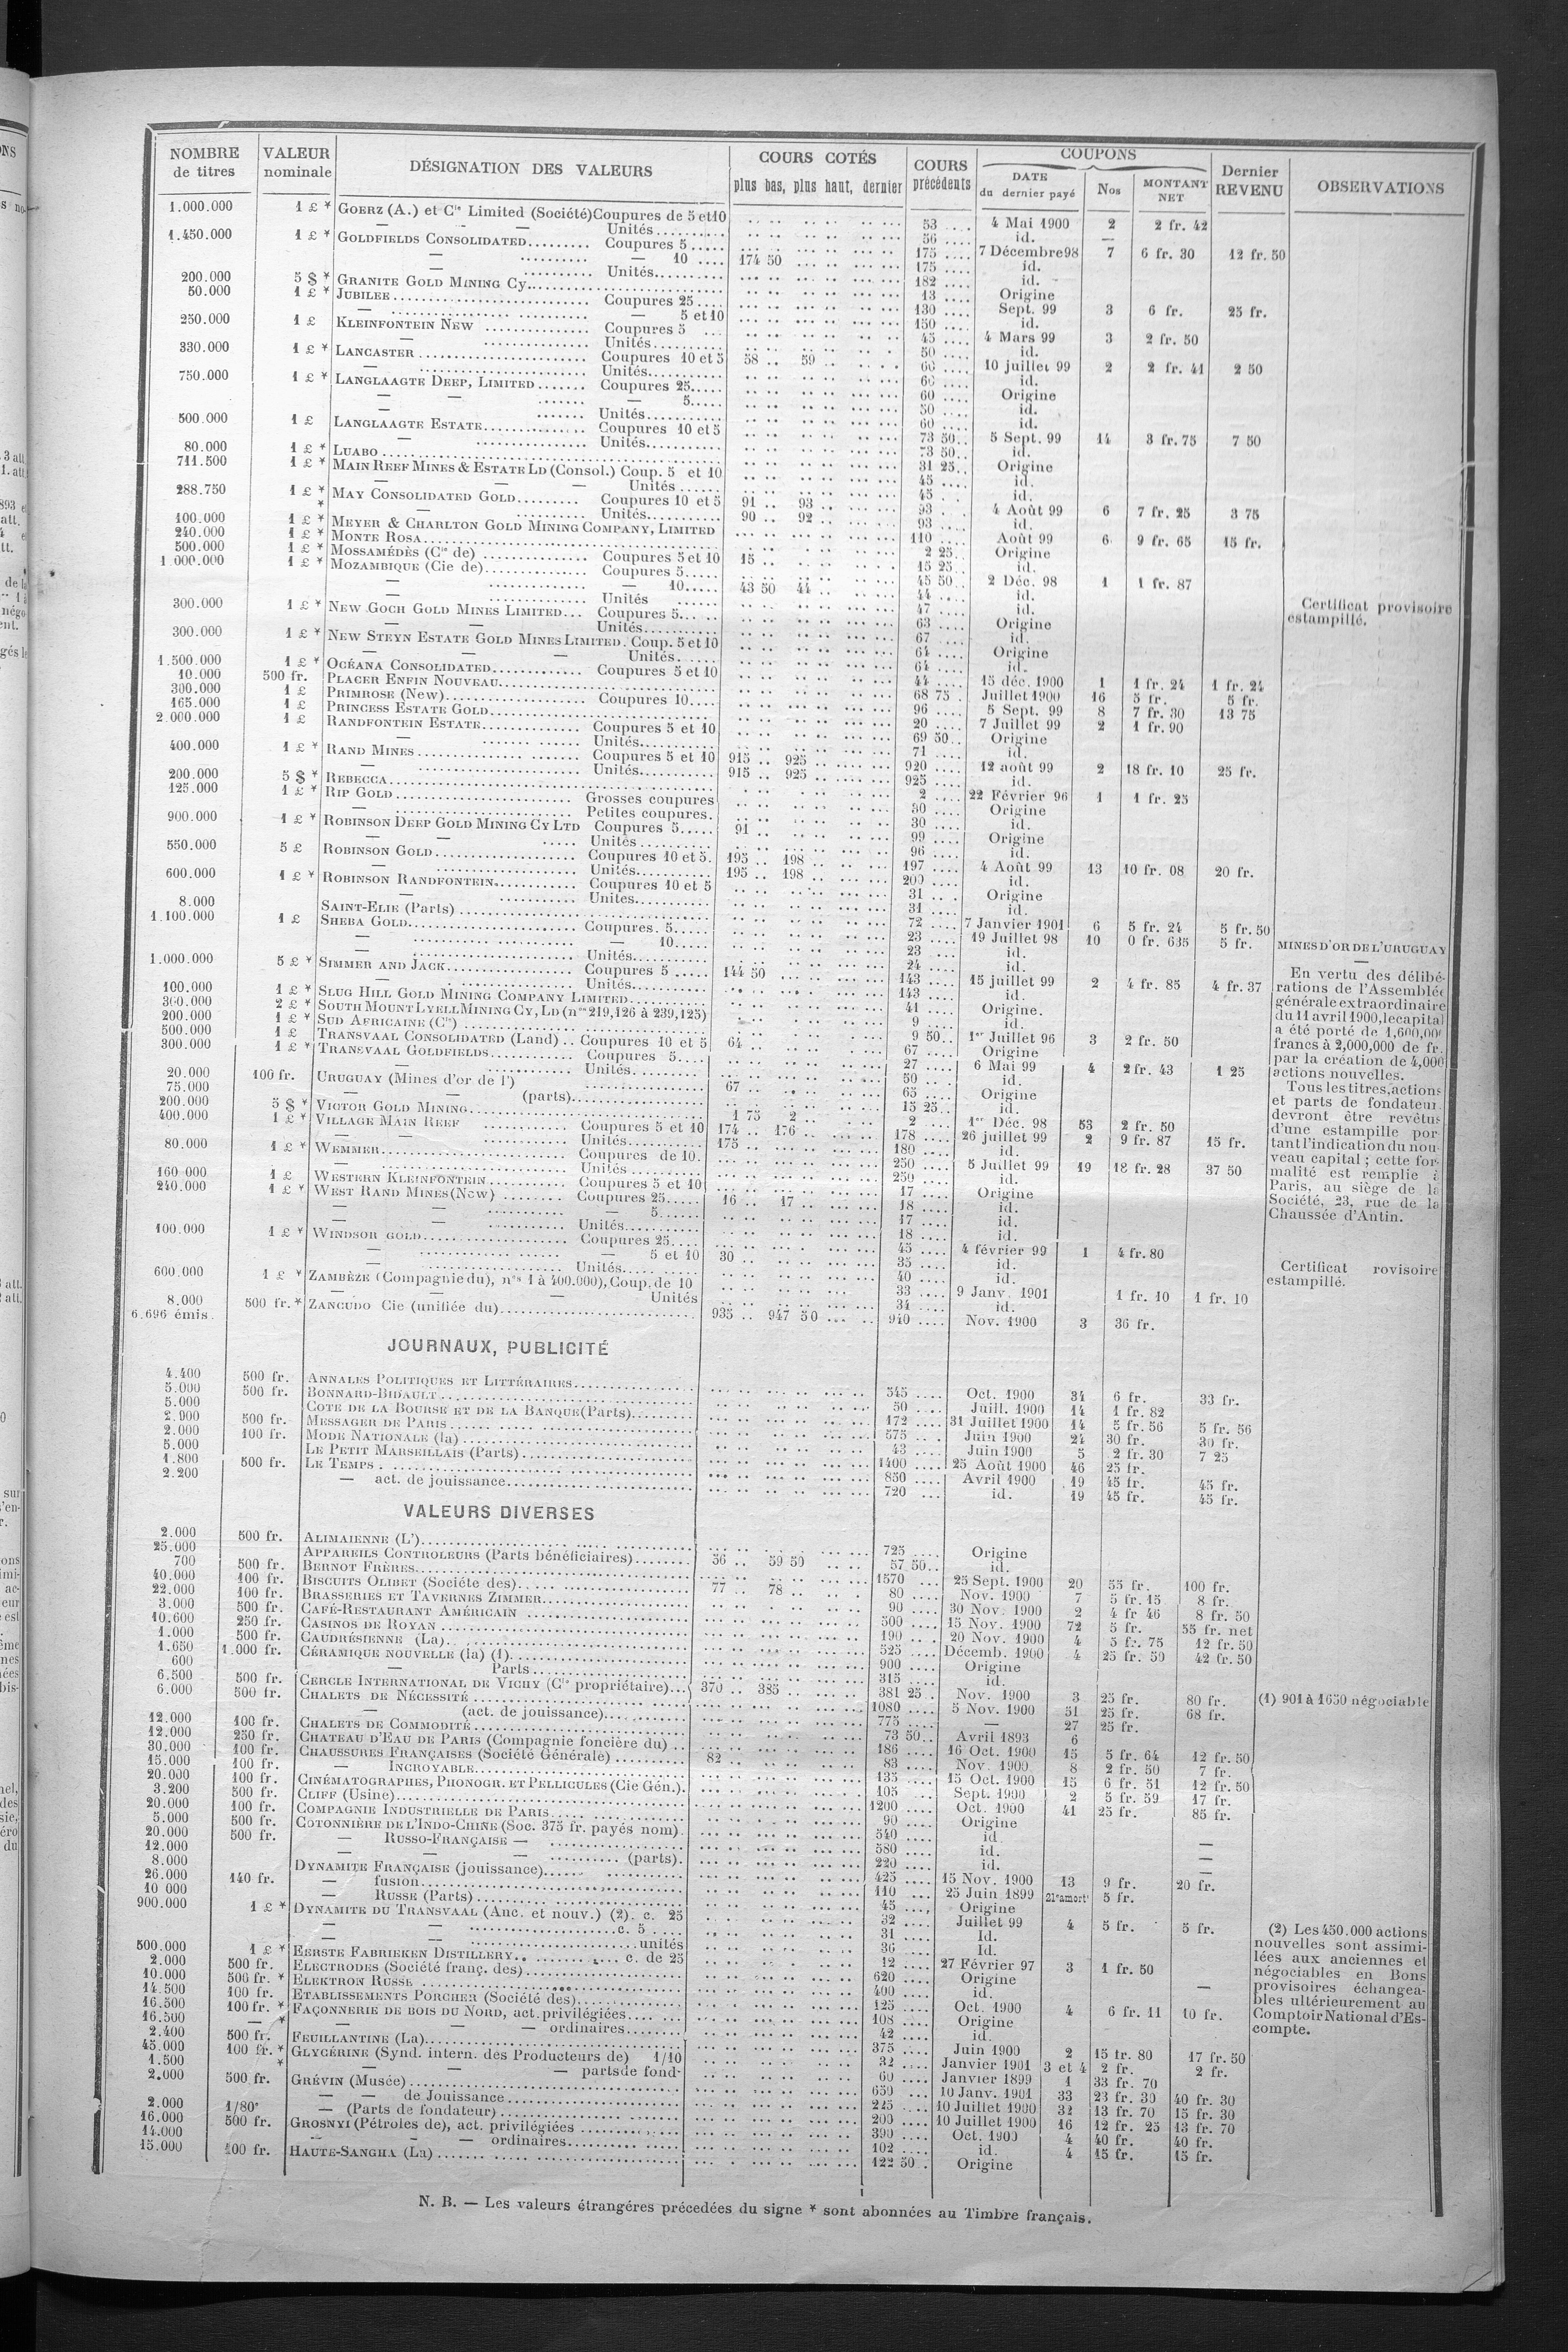 NOMBRE de titres | VALEUR nominale | DÉSIGNATION DES VALEURS | COURS COTÉS plus bas, plus haut, dernier | COURS précédents | COUPONS DATE du dernier payé | Nos | MONTANT NET | Dernier REVENU | OBSERVATIONS
1.000.000 1 £ * GOERZ (A.) et Cie Limited (Société) Coupures de 5 et 10 53 4 Mai 1900 2 2 fr. 42
— — Unités 56 id. —
1.450.000 1 £ * GOLDFIELDS CONSOLIDATED Coupures 5 175 7 Décembre 98 7 6 fr. 30 12 fr. 50
— — 10 174 50 175 id.
— Unités 182 id.
200.000 5 $ * GRANITE GOLD MINING Cy 13 Origine
50.000 1 £ * JUBILEE Coupures 25 130 Sept. 99 3 6 fr. 25 fr.
— — 5 et 10 150 id.
250.000 1 £ KLEINFONTEIN NEW Coupures 5 45 4 Mars 99 3 2 fr. 50
— Unités 50 id.
330.000 1 £ * LANCASTER Coupures 10 et 5 58 59 60 10 juillet 99 2 2 fr. 41 2 50
— Unités 66 id.
750.000 1 £ * LANGLAAGTE DEEP, LIMITED Coupures 25 60 Origine
— — — 5 50 id.
— — Unités 60 id.
500.000 1 £ LANGLAAGTE ESTATE Coupures 10 et 5 73 50 5 Sept. 99 14 3 fr. 75 7 50
— Unités 73 50 id.
80.000 1 £ * LUABO 31 25 Origine
711.500 1 £ * MAIN REEF MINES & ESTATE LD (Consol.) Coup. 5 et 10 45 id.
— — — Unités 45 id.
288.750 1 £ * MAY CONSOLIDATED GOLD Coupures 10 et 5 91 93 93 4 Août 99 6 7 fr. 25 3 75
* — Unités 90 92 93 id.
100.000 1 £ * MEYER & CHARLTON GOLD MINING COMPANY, LIMITED 110 Août 99 6 9 fr. 65 15 fr.
240.000 1 £ * MONTE ROSA 2 25 Origine
500.000 1 £ * MOSSAMÉDÈS (Cie de) Coupures 5 et 10 15 15 25 id.
1.000.000 1 £ * MOZAMBIQUE (Cie de) Coupures 5 45 50 2 Déc. 98 1 1 fr. 87
— — 10 43 50 44 44 id.
— Unités 47 id.
300.000 1 £ * NEW GOCH GOLD MINES LIMITED Coupures 5 63 Origine Certificat provisoire estampillé.
— — Unités 67 id.
300.000 1 £ * NEW STEYN ESTATE GOLD MINES LIMITED. Coup. 5 et 10 64 Origine
— — — Unités 64 id.
1.500.000 1 £ * OCÉANA CONSOLIDATED Coupures 5 et 10 44 15 déc. 1900 1 1 fr. 24 1 fr. 24
10.000 500 fr. PLACER ENFIN NOUVEAU 68 75 Juillet 1900 16 5 fr. 5 fr.
300.000 1 £ PRIMROSE (New) Coupures 10 96 5 Sept. 99 8 7 fr. 30 13 75
165.000 1 £ PRINCESS ESTATE GOLD 20 7 Juillet 99 2 1 fr. 90
2.000.000 1 £ RANDFONTEIN ESTATE Coupures 5 et 10 69 50 Origine
— Unités 71 id.
400.000 1 £ * RAND MINES Coupures 5 et 10 915 925 920 12 août 99 2 18 fr. 10 25 fr.
— Unités 915 925 925 id.
200.000 5 $ * REBECCA 2 22 Février 96 1 1 fr. 25
125.000 1 £ * RIP GOLD Grosses coupures 30 Origine
— Petites coupures. 30 id.
900.000 1 £ * ROBINSON DEEP GOLD MINING CY LTD Coupures 5 91 99 Origine
— — Unités 96 id.
550.000 5 £ ROBINSON GOLD Coupures 10 et 5. 195 198 197 4 Août 99 13 10 fr. 08 20 fr.
— Unités 195 198 200 id.
600.000 1 £ * ROBINSON RANDFONTEIN Coupures 10 et 5 31 Origine
— Unités 31 id.
8.000 SAINT-ELIE (Parts) 72 7 Janvier 1901 6 5 fr. 24 5 fr. 50
1.100.000 1 £ SHEBA GOLD Coupures. 5 23 19 Juillet 98 10 0 fr. 635 5 fr.
— — 10 23 id.
— Unités 24 id.
1.000.000 5 £ * SIMMER AND JACK Coupures 5 144 50 143 15 juillet 99 2 4 fr. 85 4 fr. 37
— Unités 143 id.
100.000 1 £ * SLUG HILL GOLD MINING COMPANY LIMITED 41 Origine.
360.000 2 £ * SOUTH MOUNT LYELL MINING CY, LD (nos 219,126 à 239,125) 9 id.
200.000 1 £ * SUD AFRICAINE (Cie) 9 50 1er Juillet 96 3 2 fr. 50
500.000 1 £ TRANSVAAL CONSOLIDATED (Land) Coupures 10 et 5 64 67 Origine
300.000 1 £ * TRANSVAAL GOLDFIELDS Coupures 5 27 6 Mai 99 4 2 fr. 43 1 25
— Unités 50 id.
20.000 100 fr. URUGUAY (Mines d'or de l') 67 65 Origine
75.000 — — (parts) 15 25 id.
200.000 5 $ * VICTOR GOLD MINING 1 75 2 2 1er Déc. 98 53 2 fr. 50
400.000 1 £ * VILLAGE MAIN REEF Coupures 5 et 10 174 176 178 26 juillet 99 2 9 fr. 87 15 fr.
— — Unités 175 180 id.
80.000 1 £ * WEMMER Coupures de 10. 250 5 Juillet 99 19 18 fr. 28 37 50
— Unités 250 id.
160 000 1 £ WESTERN KLEINFONTEIN Coupures 5 et 10 17 Origine
240.000 1 £ * WEST RAND MINES (New) Coupures 25 16 17 18 id.
— — — 5 17 id.
— — Unités 18 id.
100.000 1 £ * WINDSOR GOLD Coupures 25 45 4 février 99 1 4 fr. 80
— — 5 et 10 30 35 id.
— Unités 40 id.
600.000 1 £ * ZAMBÈZE (Compagnie du), nos 1 à 400.000), Coup. de 10 33 9 Janv. 1901 1 fr. 10 1 fr. 10
— — — Unités 34 id.
8.000 500 fr. * ZANCUDO Cie (unifiée du) 935 947 50 940 Nov. 1900 3 36 fr.
6.696 émis.
MINES D'OR DE L'URUGUAY
—
En vertu des délibé-
rations de l'Assemblée
générale extraordinaire
du 11 avril 1900, le capital
a été porté de 1,600,000
francs à 2,000,000 de fr.
par la création de 4,000
actions nouvelles.
Tous les titres, actions
et parts de fondateur
devront être revêtus
d'une estampille por-
tant l'indication du nou-
veau capital ; cette for-
malité est remplie à
Paris, au siège de la
Société, 23, rue de la
Chaussée d'Antin.
Certificat rovisoire
estampillé.
JOURNAUX, PUBLICITÉ
4.400 500 fr. ANNALES POLITIQUES ET LITTÉRAIRES 545 Oct. 1900 34 6 fr. 33 fr.
5.000 500 fr. BONNARD-BIDAULT 50 Juill. 1900 14 1 fr. 82
5.000 COTE DE LA BOURSE ET DE LA BANQUE (Parts) 172 31 Juillet 1900 14 5 fr. 56 5 fr. 56
2.900 500 fr. MESSAGER DE PARIS 575 Juin 1900 24 30 fr. 30 fr.
2.000 100 fr. MODE NATIONALE (la) 43 Juin 1900 5 2 fr. 30 7 25
5.000 LE PETIT MARSEILLAIS (Parts) 1400 25 Août 1900 46 25 fr.
1.800 500 fr. LE TEMPS 850 Avril 1900 19 45 fr. 45 fr.
2.200 — act. de jouissance 720 id. 19 45 fr. 45 fr.
VALEURS DIVERSES
2.000 500 fr. ALIMAIENNE (L') 725 Origine
25.000 APPAREILS CONTROLEURS (Parts bénéficiaires) 56 59 50 57 50 id.
700 500 fr. BERNOT FRÈRES 1570 25 Sept. 1900 20 55 fr. 100 fr.
40.000 100 fr. BISCUITS OLIBET (Sociéte des) 77 78 80 Nov. 1900 7 5 fr. 15 8 fr.
22.000 100 fr. BRASSERIES ET TAVERNES ZIMMER 90 30 Nov. 1900 2 4 fr 46 8 fr. 50
3.000 500 fr. CAFÉ-RESTAURANT AMÉRICAIN 500 15 Nov. 1900 72 5 fr. 55 fr. net
10.600 250 fr. CASINOS DE ROYAN 190 20 Nov. 1900 4 5 fr. 75 12 fr. 50
1.000 500 fr. CAUDRÉSIENNE (La) 525 Décemb. 1900 4 25 fr. 59 42 fr. 50
1.650 1.000 fr. CÉRAMIQUE NOUVELLE (la) (1) 900 Origine
600 — Parts 315 id.
6.500 500 fr. CERCLE INTERNATIONAL DE VICHY (Cie propriétaire) 370 385 381 25 Nov. 1900 3 25 fr. 80 fr. (1) 901 à 1650 négociable
6.000 500 fr. CHALETS DE NÉCESSITÉ 1080 5 Nov. 1900 51 25 fr. 68 fr.
— (act. de jouissance) 775 — 27 25 fr.
12.000 100 fr. CHALETS DE COMMODITÉ 73 50 Avril 1893 6
12.000 250 fr. CHATEAU D'EAU DE PARIS (Compagnie foncière du) 186 16 Oct. 1900 15 5 fr. 64 12 fr. 50
30.000 100 fr. CHAUSSURES FRANÇAISES (Société Générale) 82 83 Nov. 1900 8 2 fr. 50 7 fr.
15.000 100 fr. — INCROYABLE 135 15 Oct. 1900 15 6 fr. 51 12 fr. 50
20.000 100 fr. CINÉMATOGRAPHES, PHONOGR. ET PELLICULES (Cie Gén.). 105 Sept. 1900 2 5 fr. 59 17 fr.
3.200 500 fr. CLIFF (Usine) 1200 Oct. 1900 41 25 fr. 85 fr.
20.000 100 fr. COMPAGNIE INDUSTRIELLE DE PARIS 90 Origine
5.000 500 fr. COTONNIÈRE DE L'INDO-CHINE (Soc. 375 fr. payés nom) 540 id. —
20.000 500 fr. — RUSSO-FRANÇAISE — 580 id. —
12.000 — — — (parts). 220 id. —
8.000 DYNAMITE FRANÇAISE (jouissance) 425 15 Nov. 1900 13 9 fr. 20 fr.
26.000 140 fr. — fusion 110 25 Juin 1899 21e amort 5 fr.
10 000 — RUSSE (Parts) 45 Origine
900.000 1 £ * DYNAMITE DU TRANSVAAL (Anc. et nouv.) (2). c. 25 32 Juillet 99 4 5 fr. 5 fr.
— — c. 5 31 Id.
— — unités 36 Id.
500.000 1 £ * EERSTE FABRIEKEN DISTILLERY c. de 25 12 27 Février 97 3 1 fr. 50
2.000 500 fr. ELECTRODES (Société franç. des) 620 Origine
10.000 500 fr. * ELEKTRON RUSSE 400 id. —
14.500 100 fr. ETABLISSEMENTS PORCHER (Société des) 125 Oct. 1900 4 6 fr. 11 10 fr.
16.500 100 fr. * FAÇONNERIE DE BOIS DU NORD, act. privilégiées 108 Origine
16.500 — * — — ordinaires 42 id.
2.400 500 fr. FEUILLANTINE (La) 375 Juin 1900 2 15 fr. 80 17 fr. 50
45.000 100 fr. * GLYCÉRINE (Synd. intern. des Producteurs de) 1/10 32 Janvier 1901 3 et 4 2 fr. 2 fr.
1.500 * — — — parts de fond. 60 Janvier 1899 1 33 fr. 70
2.000 500 fr. GRÉVIN (Musée) 650 10 Janv. 1901 33 23 fr. 30 40 fr. 30
— — de Jouissance 225 10 Juillet 1900 32 13 fr. 70 15 fr. 30
2.000 1/80e — (Parts de fondateur) 200 10 Juillet 1900 16 12 fr. 25 13 fr. 70
16.000 500 fr. GROSNYI (Pétroles de), act. privilégiées 390 Oct. 1900 4 40 fr. 40 fr.
14.000 — — ordinaires 102 id. 4 15 fr. 15 fr.
15.000 100 fr. HAUTE-SANGHA (La) 122 50 Origine
(2) Les 450.000 actions
nouvelles sont assimi-
lées aux anciennes et
négociables en Bons
provisoires échangea-
bles ultérieurement au
Comptoir National d'Es-
compte.
N. B. — Les valeurs étrangères précedées du signe * sont abonnées au Timbre français.